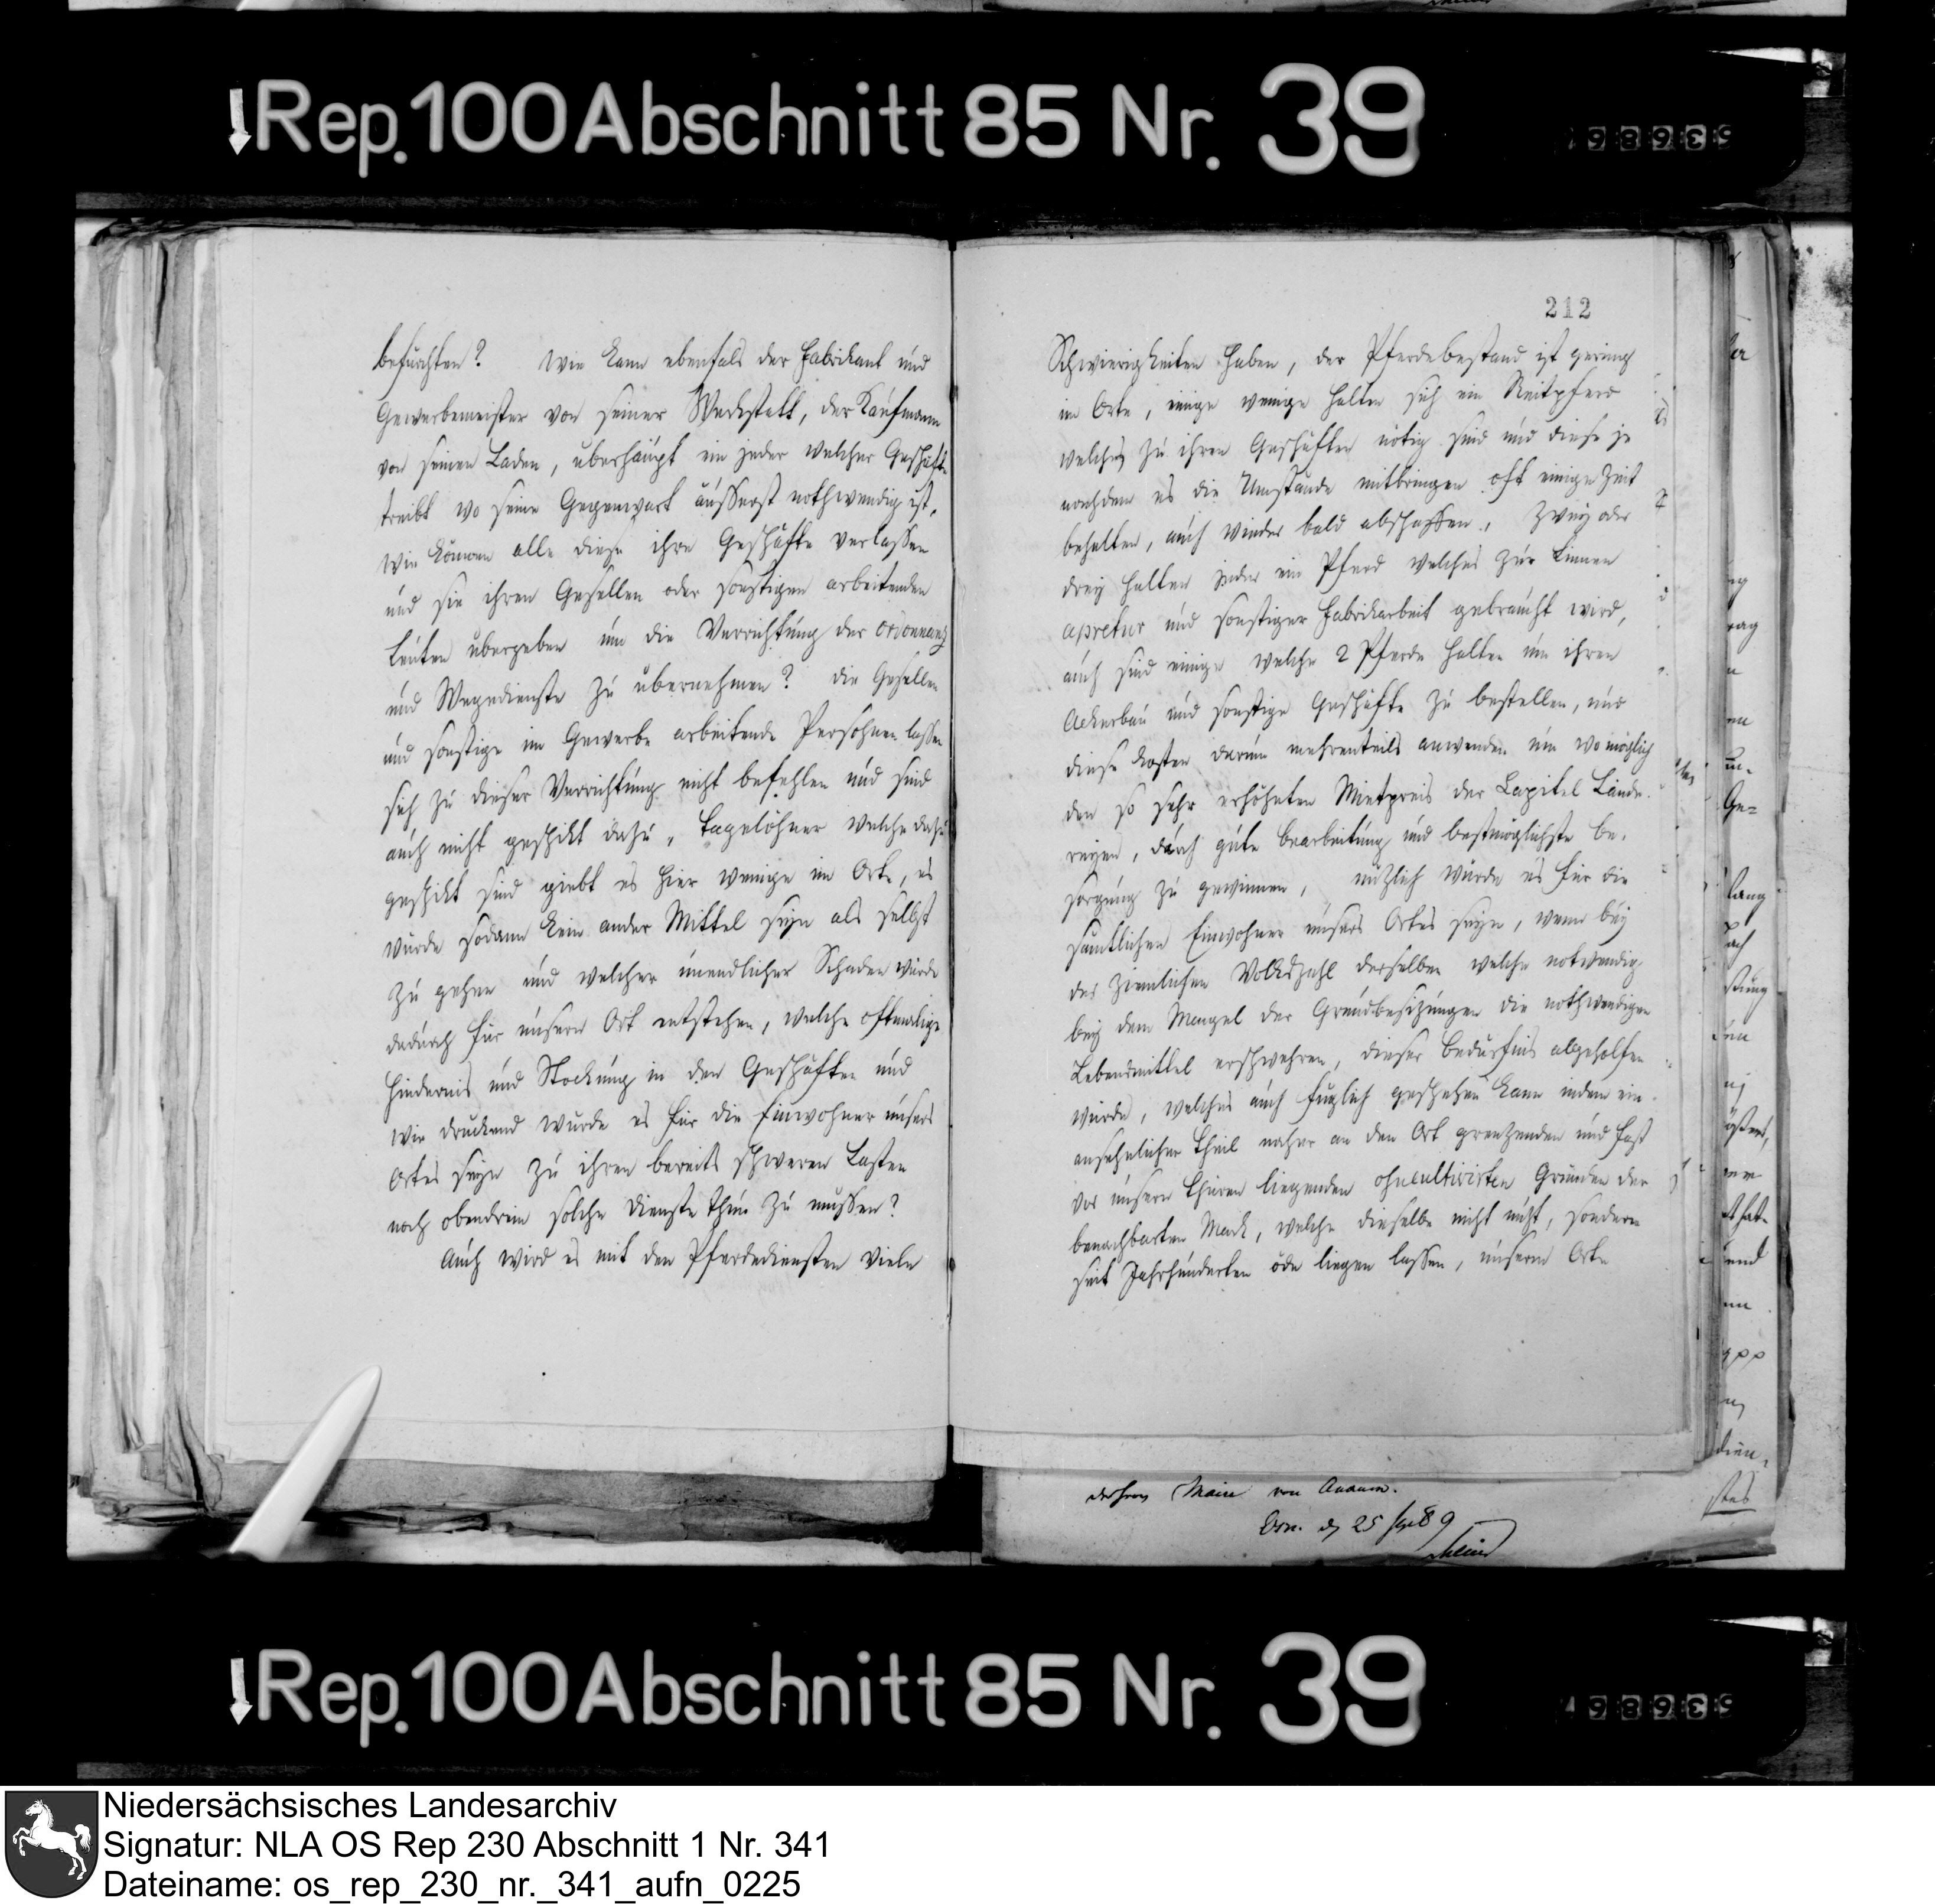 Rep. 100 Abschnitt 85 Nr. 39
befurchten? Wie kann ebenfals der Fabrikant und
Gewerbemeister von seiner Werkstatt, der Kaufmann
von seinen Laden, überhaupt ein jeder welcher Geschäfte
treibt wo seine Gegenwart äusserst nothwendig ist,
wie können alle diese ihre Geschäfte verlassen
und sie ihren Gesellen oder sonstigen arbeitenden
Leuten übergeben um die Verrichtung der ordonnanz
und Wegedienste zu übernehmen? die Gesellen
und sonstige im Gewerbe arbeitende Persohnen lassen
sich zu dieser Verrichtung nicht befehlen und sind
auch nicht geschikt dazu, Tagelöhner welche dazu
geschikt sind giebt es hier wenige im Orte, es
würde sodann kein ander Mittel seyn als selbst
zu gehen und welcher unendlicher Schaden würde
dadurch für unsern Ort entstehen, welche oftmalige
Hindernis und Stockung in den Geschäften und
wie druckend wurde es für die Einwohner unsers
Ortes seyn zu ihren bereits schweren Lasten
noch obendrein solche Dienste thun zu mussen?
Auch wird es mit den Pferdediensten viele
212
Schwierigkeiten haben, der Pferdebestand ist gering
im Orte, einige wenige halten sich ein Reitpferd
welches zu ihren Geschäften nötig sind und diese je
nachdem es die Umstände mitbringen oft einige Zeit
behalten, auch wieder bald abschaffen, Zwey oder
drey halten jeder ein Pferd welches zur Linnen
apretur und sonstiger Fabrikarbeit gebraucht wird,
auch sind einige welche 2 Pferde halten um ihren
Ackerbau und sonstige Geschäfte zu bestellen, und
diese kosten darum mehrenteils anwenden um wo möglich
den so sehr erhöheten Mietpreis der Capitel Lände-
reyen, durch gute bearbeitung und bestmöglichste be-
sorgung zu gewinnen, nüzlich würde es für die
sämtlichen Einwohner unsers Ortes seyn, wenn bey
der ziemlichen Volkszahl derselben welche notwendig
bey dem Mangel der Grundbesizungen die nothwendigen
Lebensmittel erschwehren, dieser bedürfnis abgeholfen
würde, welches auch fuglich geschehen kann indem ein
ansehnlicher Theil naher an den Ort grenzenden und fast
vor unsern Thüren liegenden ohncultivirten Gründen der
benachbarten Mark, welche dieselbe nicht nüzt, sondern
seit Jahrhunderten öde liegen lassen, unserm Orte
Maire von
25 9
Rep. 100 Abschnitt 85 Nr. 39
Niedersächsisches Landesarchiv
Signatur: NLA OS Rep 230 Abschnitt 1 Nr. 341
Dateiname: os_rep_230_nr._341_aufn_0225